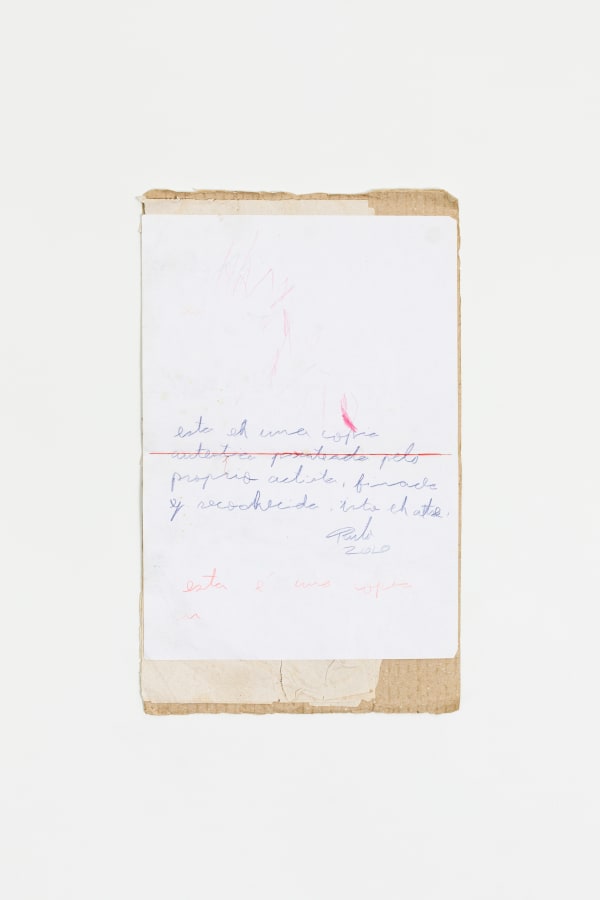 esta eh uma copia
autentica pelo
proprio artista, firmada
y reconhecida. isto eh arte.
2020
esta é uma copia